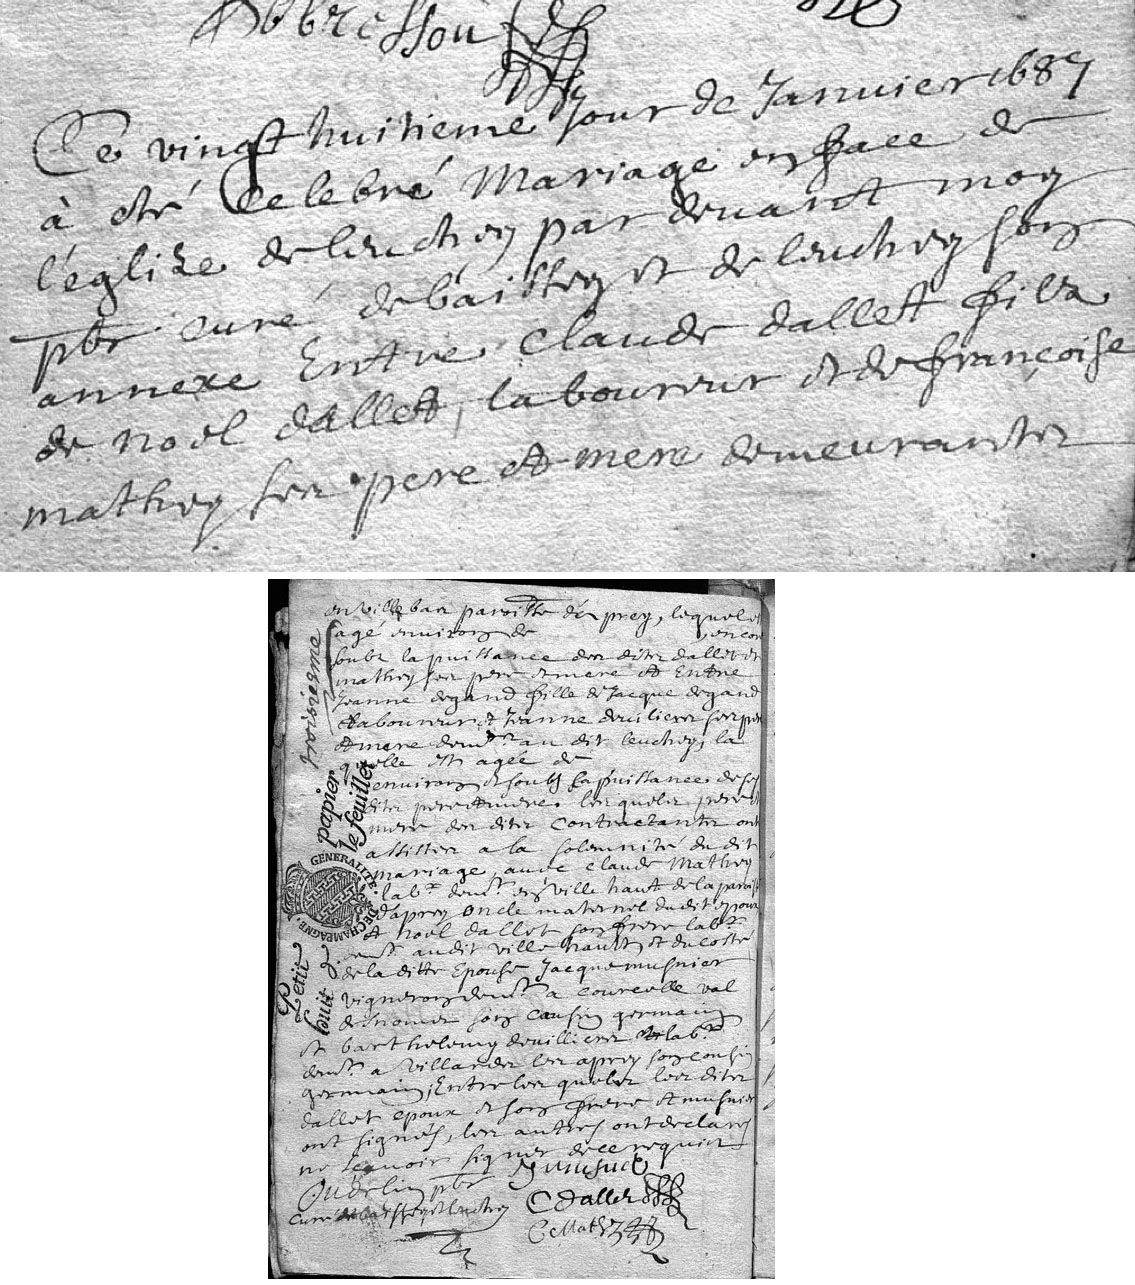 Ce vingt huitieme jour de Janvier 1687
à été Celebré Mariage en face de
l'eglize de leuchey par devant moy
pbr curé de baissey et de leuchey son
annexe Entre Claude dallet fils
de noel dallet, laboureur et de françoise
mathey ses pere et mere demeurants
en ville bas paroisse d'aprey, lequel
agé environ de encor
soubz la puissance des dits dallet et
mathey ses pere et mere et Entre
Jeanne degand fille de Jacque degand
laboureur et Jeanne deviliers ses pere
et mere demt au dit leuchey, la
quelle est agée de
environ et soubs la puissance de ses
dits pere et mere. lesquels pere et
mere des dits contractants ont
assister a la solemnité du dit
mariage, avec claude Mathey
labr demt en ville haut de la paroisse
d'aprey oncle maternel du dit epoux
et noel dallet son frere labr
demt audit ville haut et du costé
de la ditte Epouse Jacque musnier
vigneron demt a courcelle val
desnoms son causin germain
et barthelemy devilliers labr
demt a villars les aprey son cousin
germain, Entre les quels les dits
dallet epoux et son frere et musnier
ont signés, les autres ont declarés
ne scavoir signer de ce requis
pbr
curé de baissey et leuchey
C dallet
troisiesme
papier
le feuillet
GENERALITE DE CHAMPAGNE
Petit
huit d